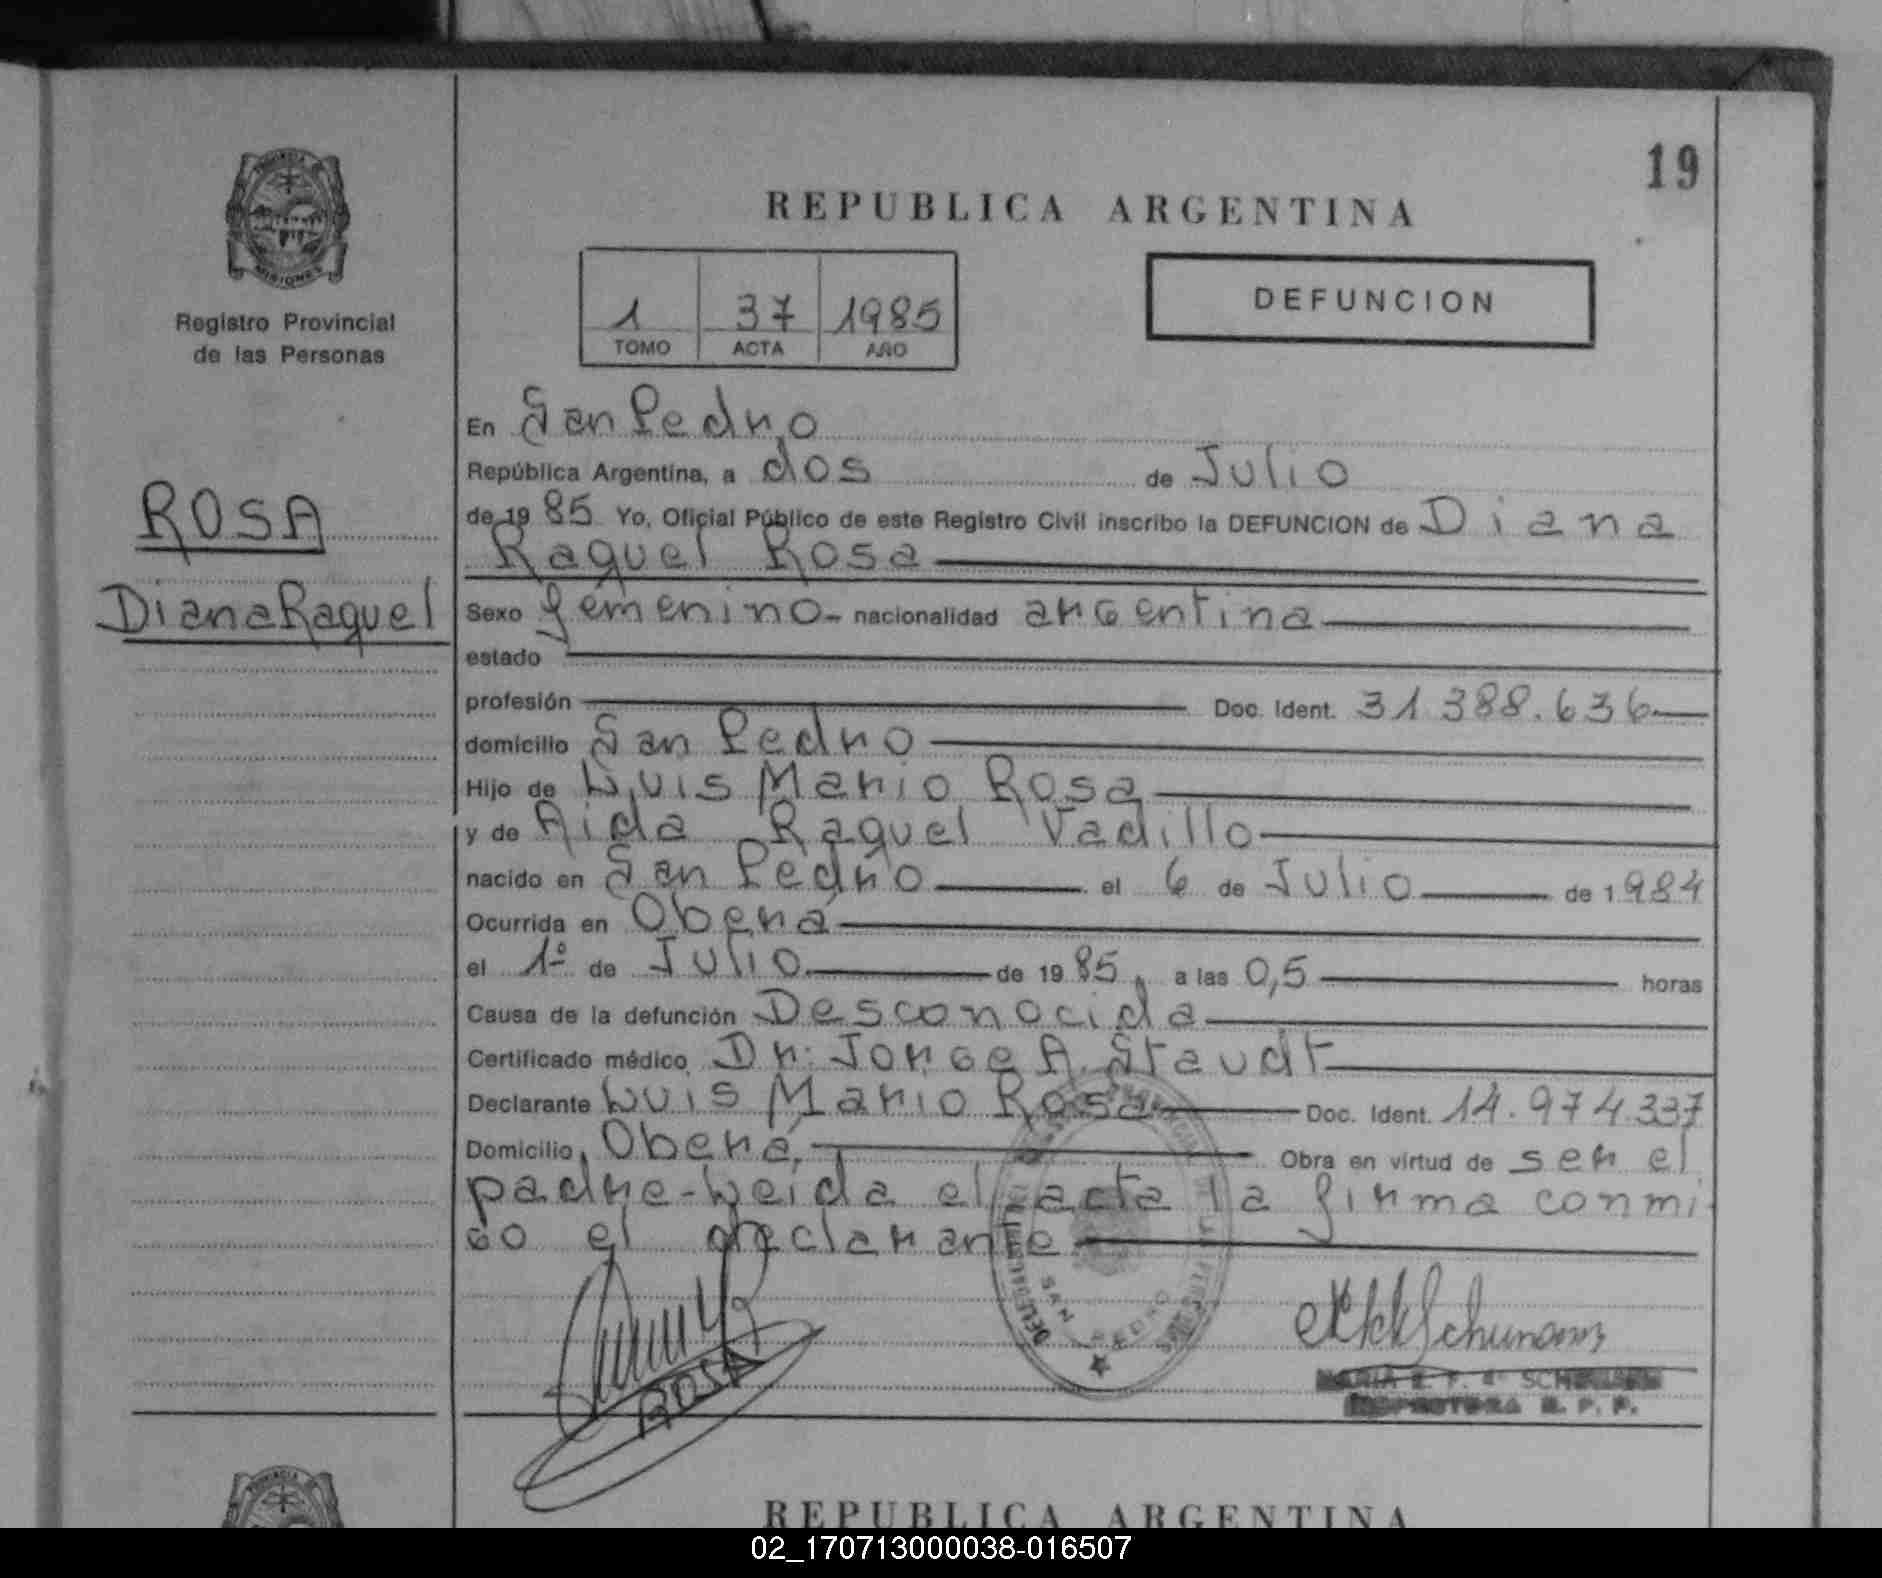 19
REPUBLICA ARGENTINA
PROVINCIA
MISIONES
Registro Provincial
de las Personas
1 37 1985
TOMO ACTA AÑO
DEFUNCION
En San Pedro
República Argentina, a dos de Julio
de 1985 Yo, Oficial Público de este Registro Civil inscribo la DEFUNCION de Diana
Raquel Rosa
ROSA
Diana Raquel
Sexo femenino- nacionalidad argentina
estado
profesión Doc. Ident. 31.388.636
domicilio San Pedro
Hijo de Luis Mario Rosa
y de Aida Raquel Vadillo
nacido en San Pedro el 6 de Julio de 1984
Ocurrida en Oberá
el 1º de Julio de 1985, a las 0,5 horas
Causa de la defunción Desconocida
Certificado médico Dr: Jorge A. Staudt
Declarante Luis Mario Rosa Doc. Ident. 14.974.337
Domicilio Oberá, Obra en virtud de ser el
padre-Leida el acta la firma conmi
go el declarante
SAN PEDRO
ROSA
Schumann
MARIA E. F. de
R. P. P.
REPUBLICA ARGENTINA
02_170713000038-016507